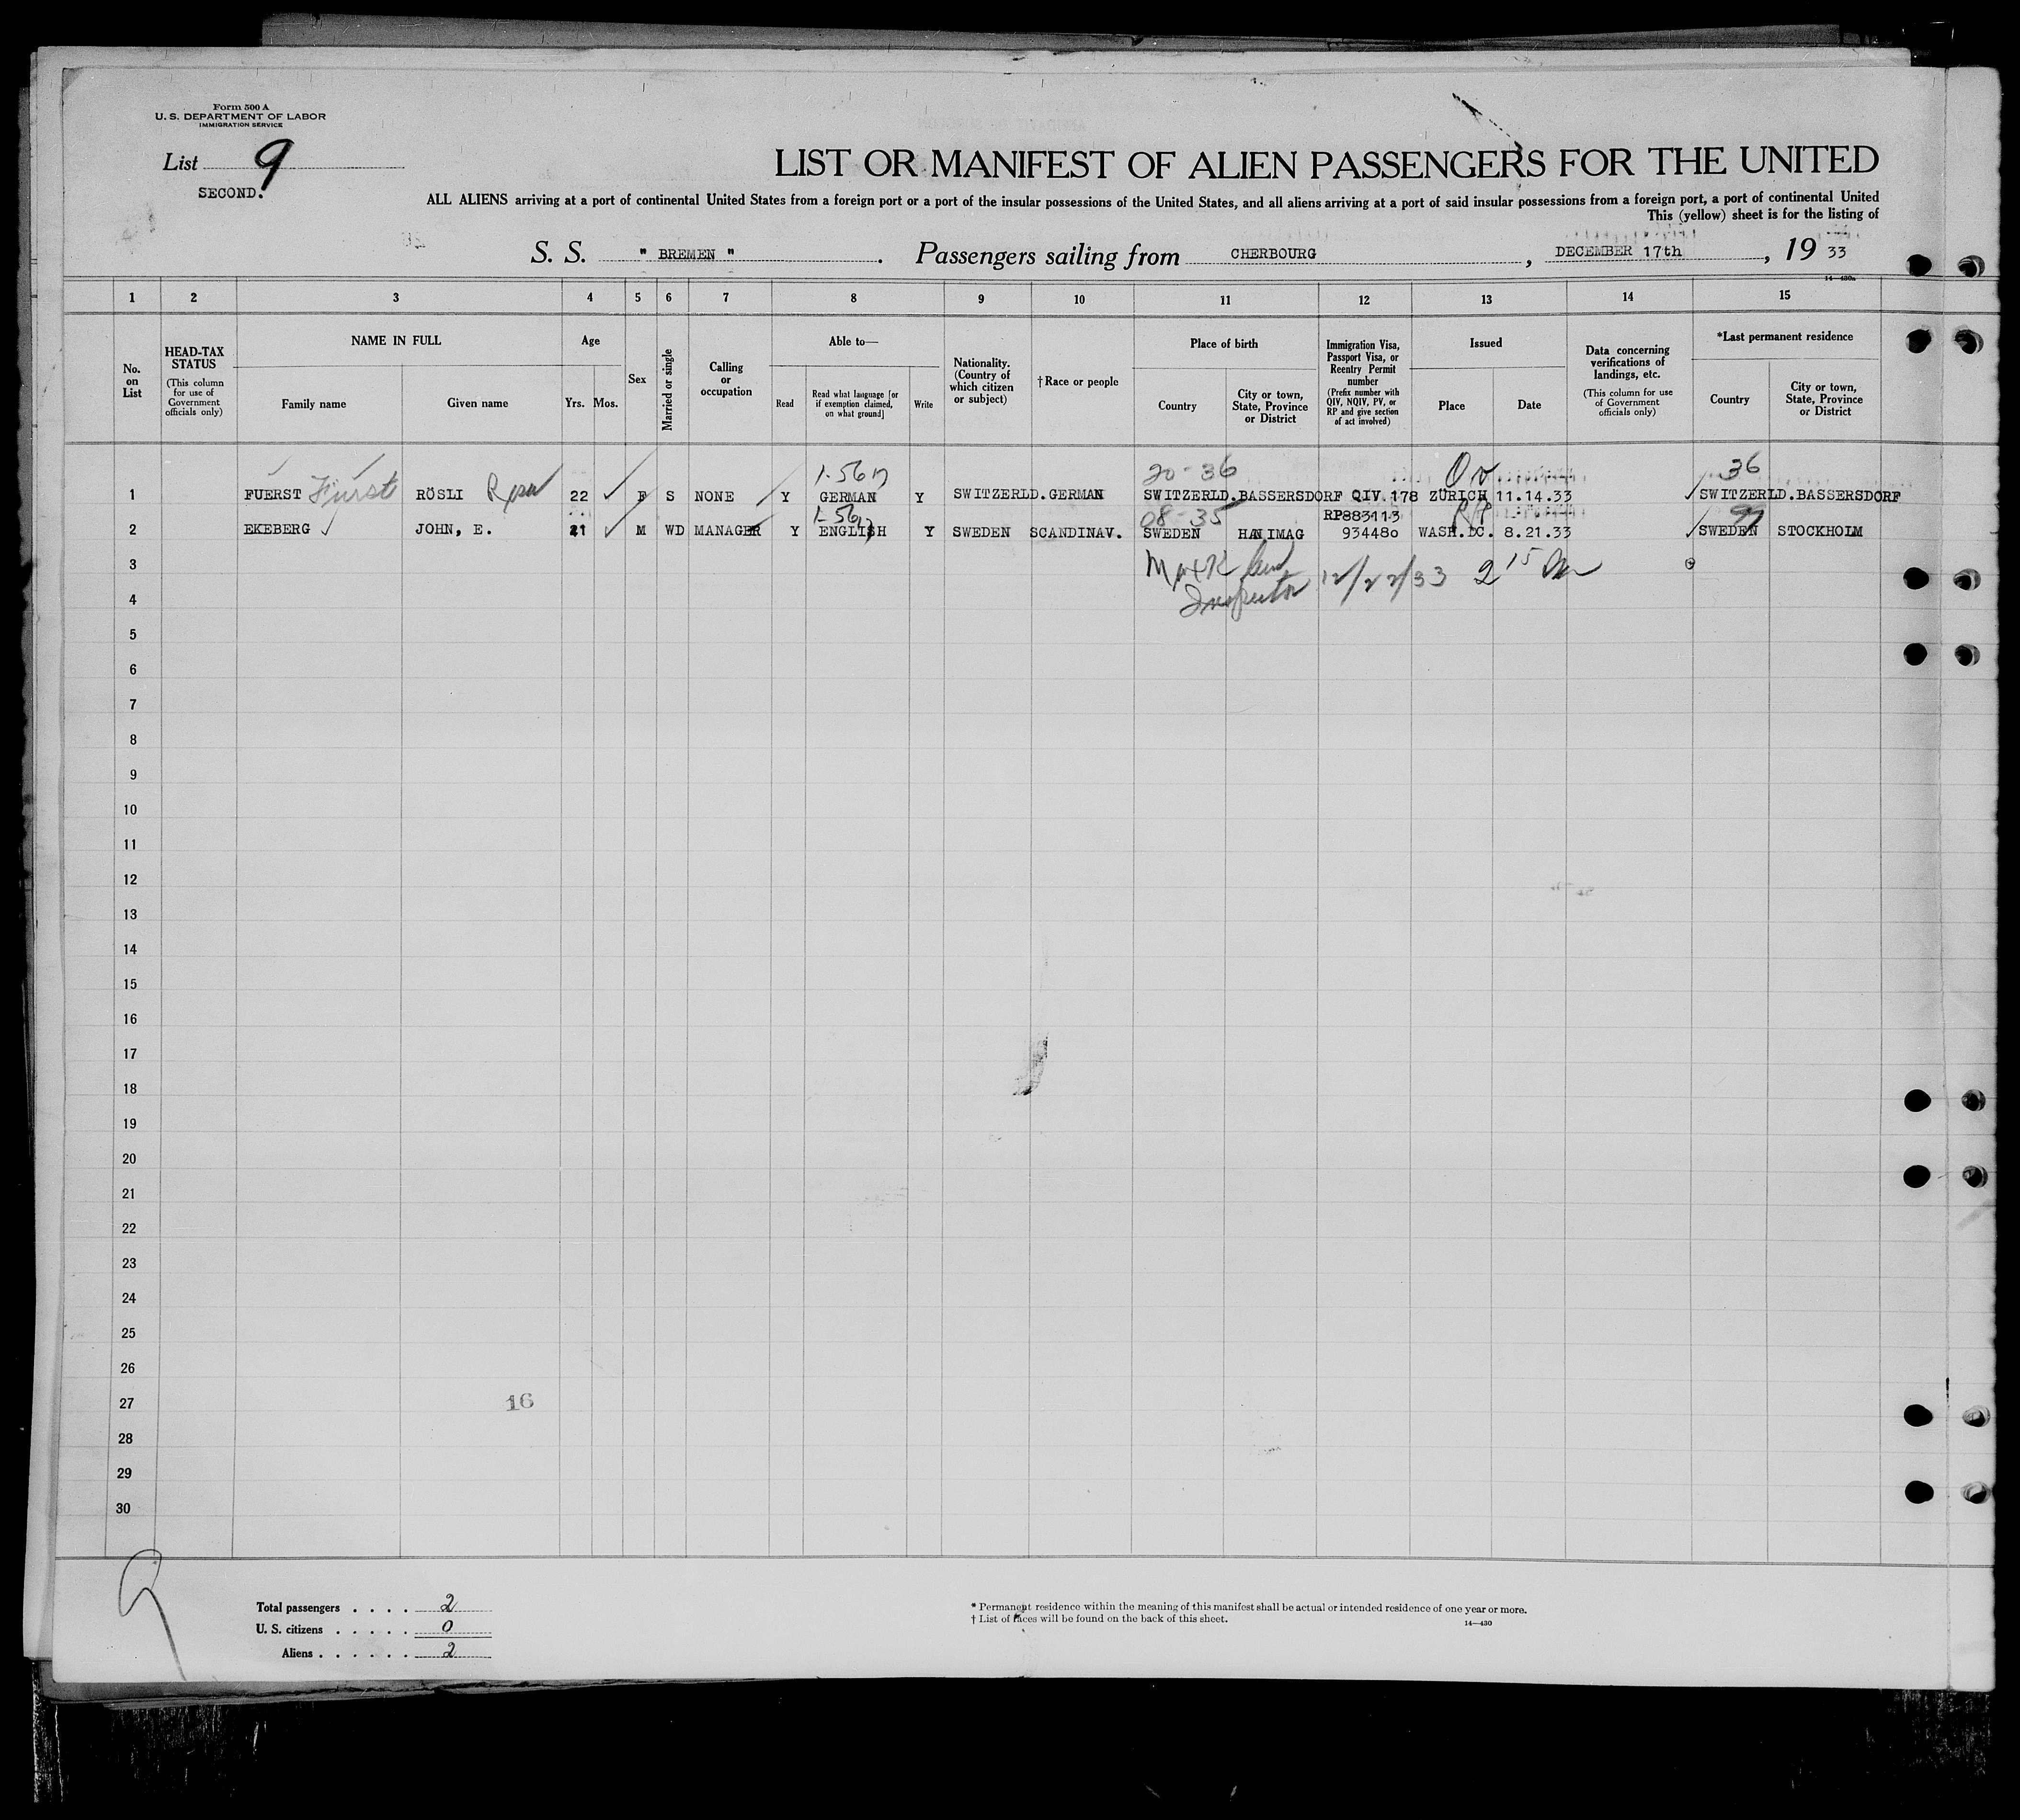 Form 500 A
U. S. DEPARTMENT OF LABOR
IMMIGRATION SERVICE
List 9
SECOND.
LIST OR MANIFEST OF ALIEN PASSENGERS FOR THE UNITED
ALL ALIENS arriving at a port of continental United States from a foreign port or a port of the insular possessions of the United States, and all aliens arriving at a port of said insular possessions from a foreign port, a port of continental United
This (yellow) sheet is for the listing of
S. S. " BREMEN " . Passengers sailing from CHERBOURG , DECEMBER 17th , 19 33
14—430a
1 2 3 4 5 6 7 8 9 10 11 12 13 14 15
No. on List
HEAD-TAX STATUS
(This column for use of Government officials only)
NAME IN FULL
Family name
Given name
Age
Yrs. Mos.
Sex
Married or single
Calling or occupation
Able to—
Read
Read what language [or if exemption claimed, on what ground]
Write
Nationality. (Country of which citizen or subject)
†Race or people
Place of birth
Country
City or town, State, Province or District
Immigration Visa, Passport Visa, or Reentry Permit number
(Prefix number with QIV, NQIV, PV, or RP and give section of act involved)
Issued
Place
Date
Data concerning verifications of landings, etc.
(This column for use of Government officials only)
*Last permanent residence
Country
City or town, State, Province or District
20-36 36
1 FUERST Fürst RÖSLI Rosa 22 F S NONE Y GERMAN Y SWITZERLD. GERMAN SWITZERLD. BASSERSDORF QIV.178 ZÜRICH 11.14.33 SWITZERLD. BASSERSDORF
08-35 RP883113 RP
2 EKEBERG JOHN, E. 41 M WD MANAGER Y ENGLISH Y SWEDEN SCANDINAV. SWEDEN 934480 WASH.DC. 8.21.33 SWEDEN STOCKHOLM
3 12/22/33 2 15
Inspector
4
5
6
7
8
9
10
11
12
13
14
15
16
17
18
19
20
21
22
23
24
25
26
27 16
28
29
30
Total passengers . . . . 2
U. S. citizens . . . . . 0
Aliens . . . . . . 2
* Permanent residence within the meaning of this manifest shall be actual or intended residence of one year or more.
† List of races will be found on the back of this sheet.
14—430